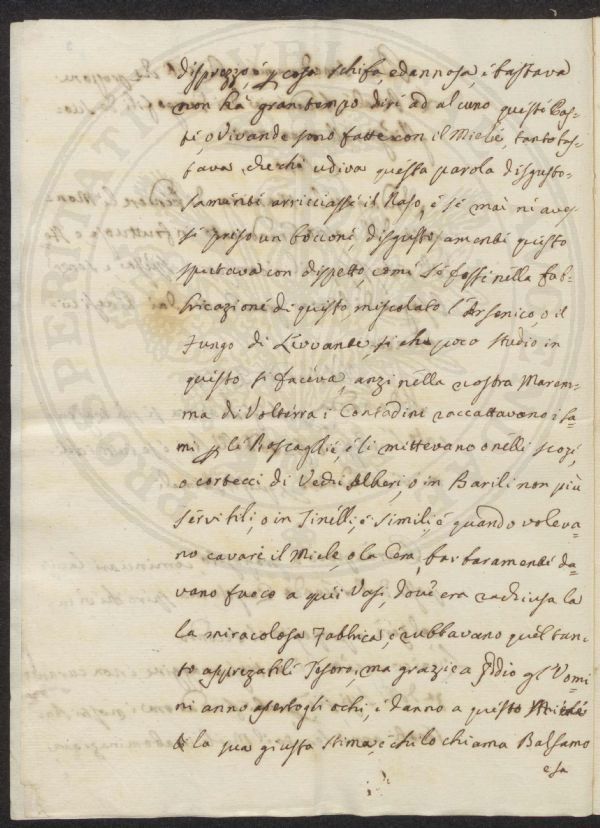 disprezzo, ò p cosa schifa, e dannosa, è bastava
non hà gran tempo dire ad alcuno questi Pas-
ti, o Vivande sono fatte con il Miele, tanto bas-
tava, che chi udiva questa parola disgusto-
samente arricciasse il Naso, è se mai ne aves-
se preso un boccone disgustosamente questo
sputava con dispetto, come se fosse nella fab-
bricazione di questo miscolato l'Arsenico, o il
fungo di Levvante si che poco studio in
questo si faceva, anzi nella vostra Marem-
ma di Volterra i Contadini raccattavano i sa-
mi p le Boscaglie, è li mettevano o nelli scozi,
o cortecci di Vechi Alberi, o in Barili non più
servibili, o in Tinelli, è simili, è quando voleva-
no cavare il Miele, o la Cera, barbaramente da-
vano fuoco a quei Vasi, dov'era rachiusa la
la miracolosa Fabbrica, è rubbavano quel tan-
to apprezabile Tesoro, ma grazie a Idio gl'Uomi-
ni anno aperto gli ochi, è danno a questo Miele
la sua giusta stima, è chi lo chiama Balsamo
esa